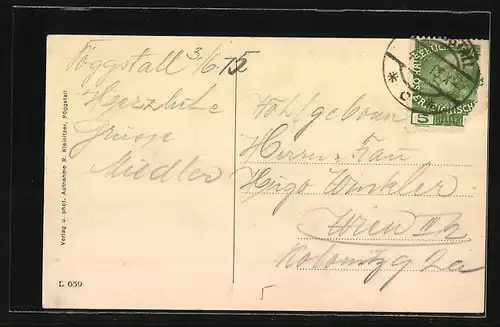 Pöggstall 3./6. 15
Herzliche
Grüsse
Miedler
Wohlgeboren
Herrn u. Frau
Hugo Winkler
Wien III/2
Kolonitzg 2a
5
Verlag u. phot. Aufnahme R. Kleinitzer, Pöggstall
L 659
5 HELLER